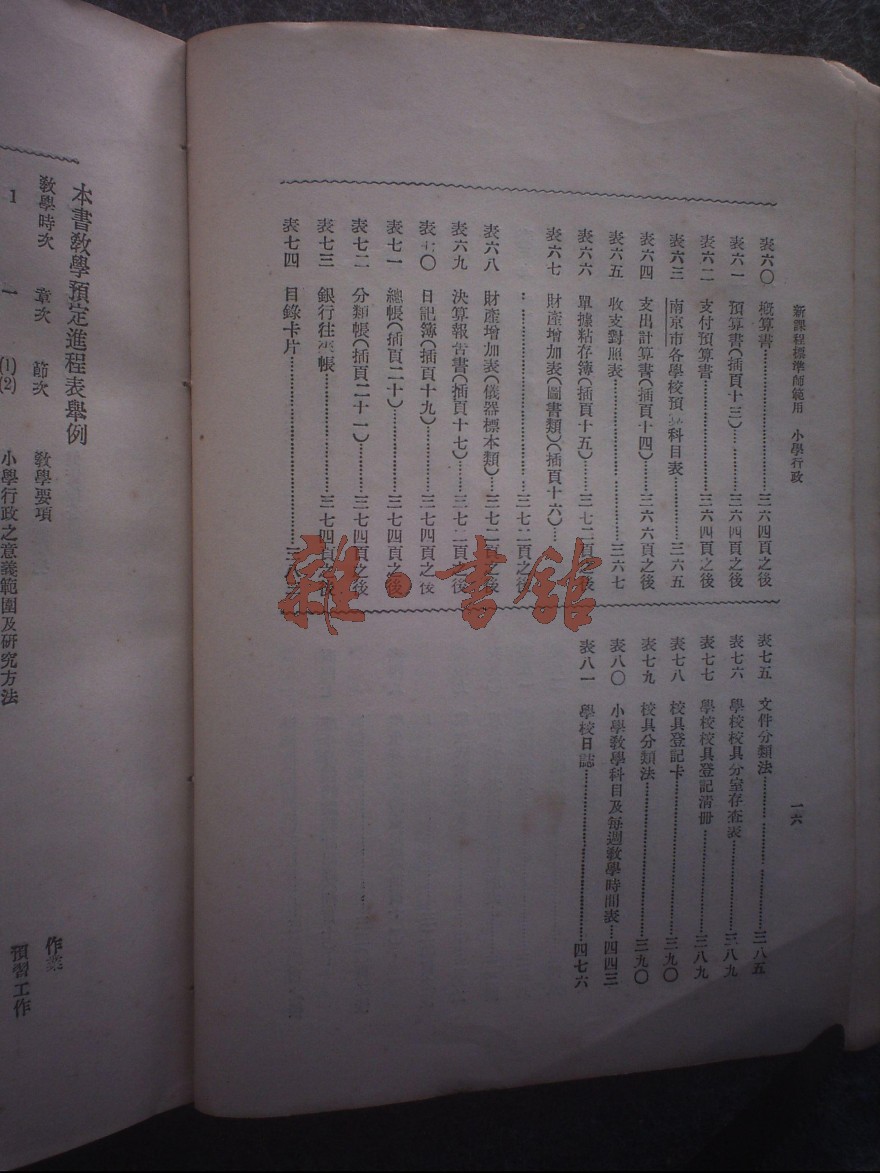 新課程標準師範用　小學行政
一六
表六〇　概算書……三六四頁之後
表六一　預算書(插頁十三)……三六四頁之後
表六二　支付預算書……三六四頁之後
表六三　南京市各學校預算科目表……三六五
表六四　支出計算書(插頁十四)……三六六頁之後
表六五　收支對照表……三六七
表六六　單據粘存簿(插頁十五)……三七二頁之後
表六七　財產增加表(圖書類)(插頁十六)……
……三七二頁之後
表六八　財產增加表(儀器標本類)……三七二頁之後
表六九　決算報告書(插頁十七)……三七二頁之後
表七〇　日記簿(插頁十九)……三七四頁之後
表七一　總帳(插頁二十)……三七四頁之後
表七二　分類帳(插頁二十一)……三七四頁之後
表七三　銀行往來帳……三七四頁之後
表七四　目錄卡片……三八
表七五　文件分類法……三八五
表七六　學校校具分室存查表……三八九
表七七　學校校具登記清冊……三八九
表七八　校具登記卡……三九〇
表七九　校具分類法……三九〇
表八〇　小學教學科目及每週教學時間表……四四三
表八一　學校日誌……四七六
本書教學預定進程表舉例
教學時次　章次　節次　教學要項　作業
1　一　(1)(2)　小學行政之意義範圍及研究方法　預習工作
雜·書館